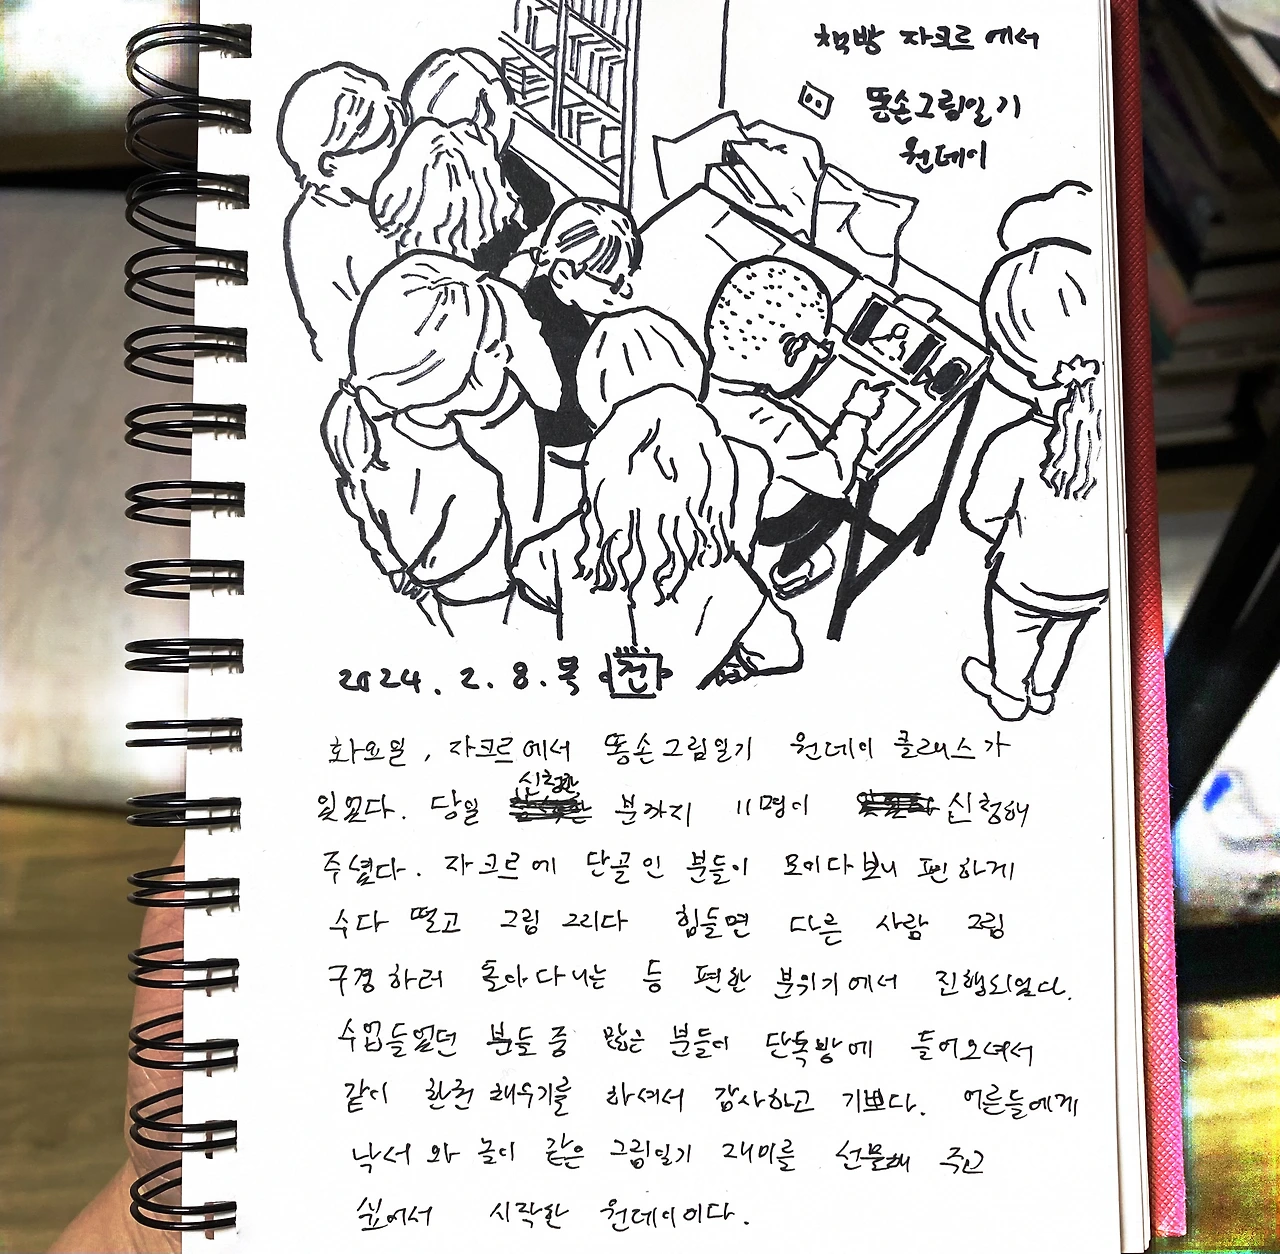 책방 자크르에서
똥손그림일기
원데이
2024.2.8.목 천
화요일, 자크르에서 똥손그림일기 원데이 클래스가
신청한
있었다. 당일 분까지 11명이 신청해
주셨다. 자크르에 단골인 분들이 모이다보니 편하게
수다 떨고 그림 그리다 힘들면 다른 사람 그림
구경하러 돌아다니는 등 편한 분위기에서 진행되었다.
수업들었던 분들 중 많은 분들이 단톡방에 들어오셔서
같이 한권 채우기를 하셔서 감사하고 기쁘다. 어른들에게
낙서와 놀이 같은 그림일기 재미를 선물해 주고
싶어서 시작한 원데이이다.